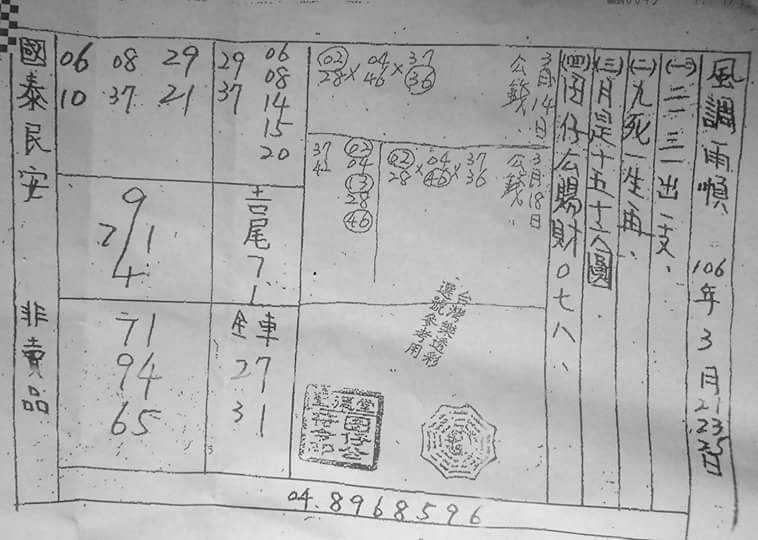 風調雨順 106年3月21 23 25日
(一)二三一出一支、
(二)九死一生再、
(三)月是十五十六圓
(四)囝仔公賜財〇七八、
3月14日
公錢、
02 04 37
28 × 46 × 36
3月18日
公錢、
02 04 37
28 × 46 × 36
02
04
13
28
46
37
42
台灣樂透彩
選號參考用
囝仔公
29 06
37 08
14
15
20
06 08 29
10 37 21
二尾
7
1
9
2/1
4
全車
27
31
71
94
65
國泰民安 非賣品
04.8968596